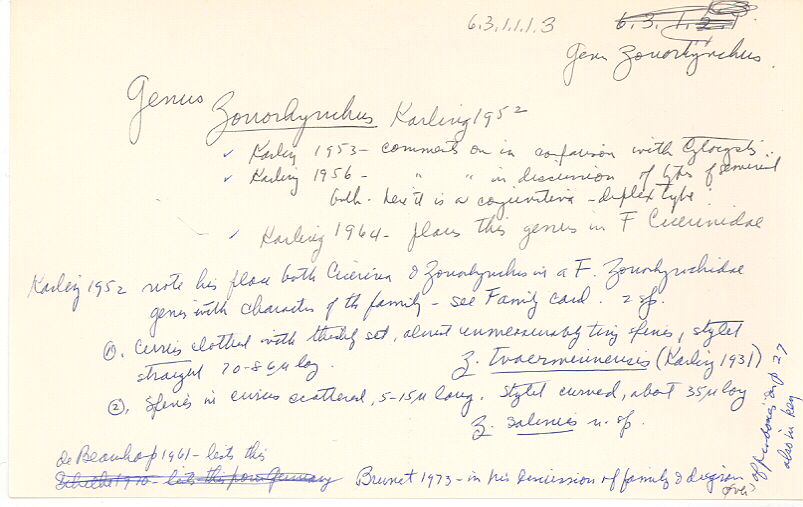 6.3.1.1.3 6.3.1.2.1
Genus Zonorhynchus.
Genus Zonorhynchus Karling 1952
✓ Karling 1953 - comments on in comparison with Cytocystis..
✓ Karling 1956 - " " in discussion of types of seminal
bulb. here it is a conjunctiva - duplex type.
✓ Karling 1964 - places this genus in F Cicerinidae
Karling 1952 note his place both Cicerina & Zonorhynchus in a F. Zonorhynchidae
genus with characters of the family - see Family card. 2 sp.
①. Cirrus clothed with thickly set, almost unmeasurably tiny spines, stylet
straight 70-86µ long. Z. Tvaerminnensis (Karling 1931)
②, Spines in cirrus scattered, 5-15µ long. Stylet curved, about 35µ long
Z. salinus n. sp.
de Beauchamp 1961 - lists this
Schilke 1970 - lists this from Germany Brunet 1973 - in his discussion of family & division
(over)
of p 27
also in key